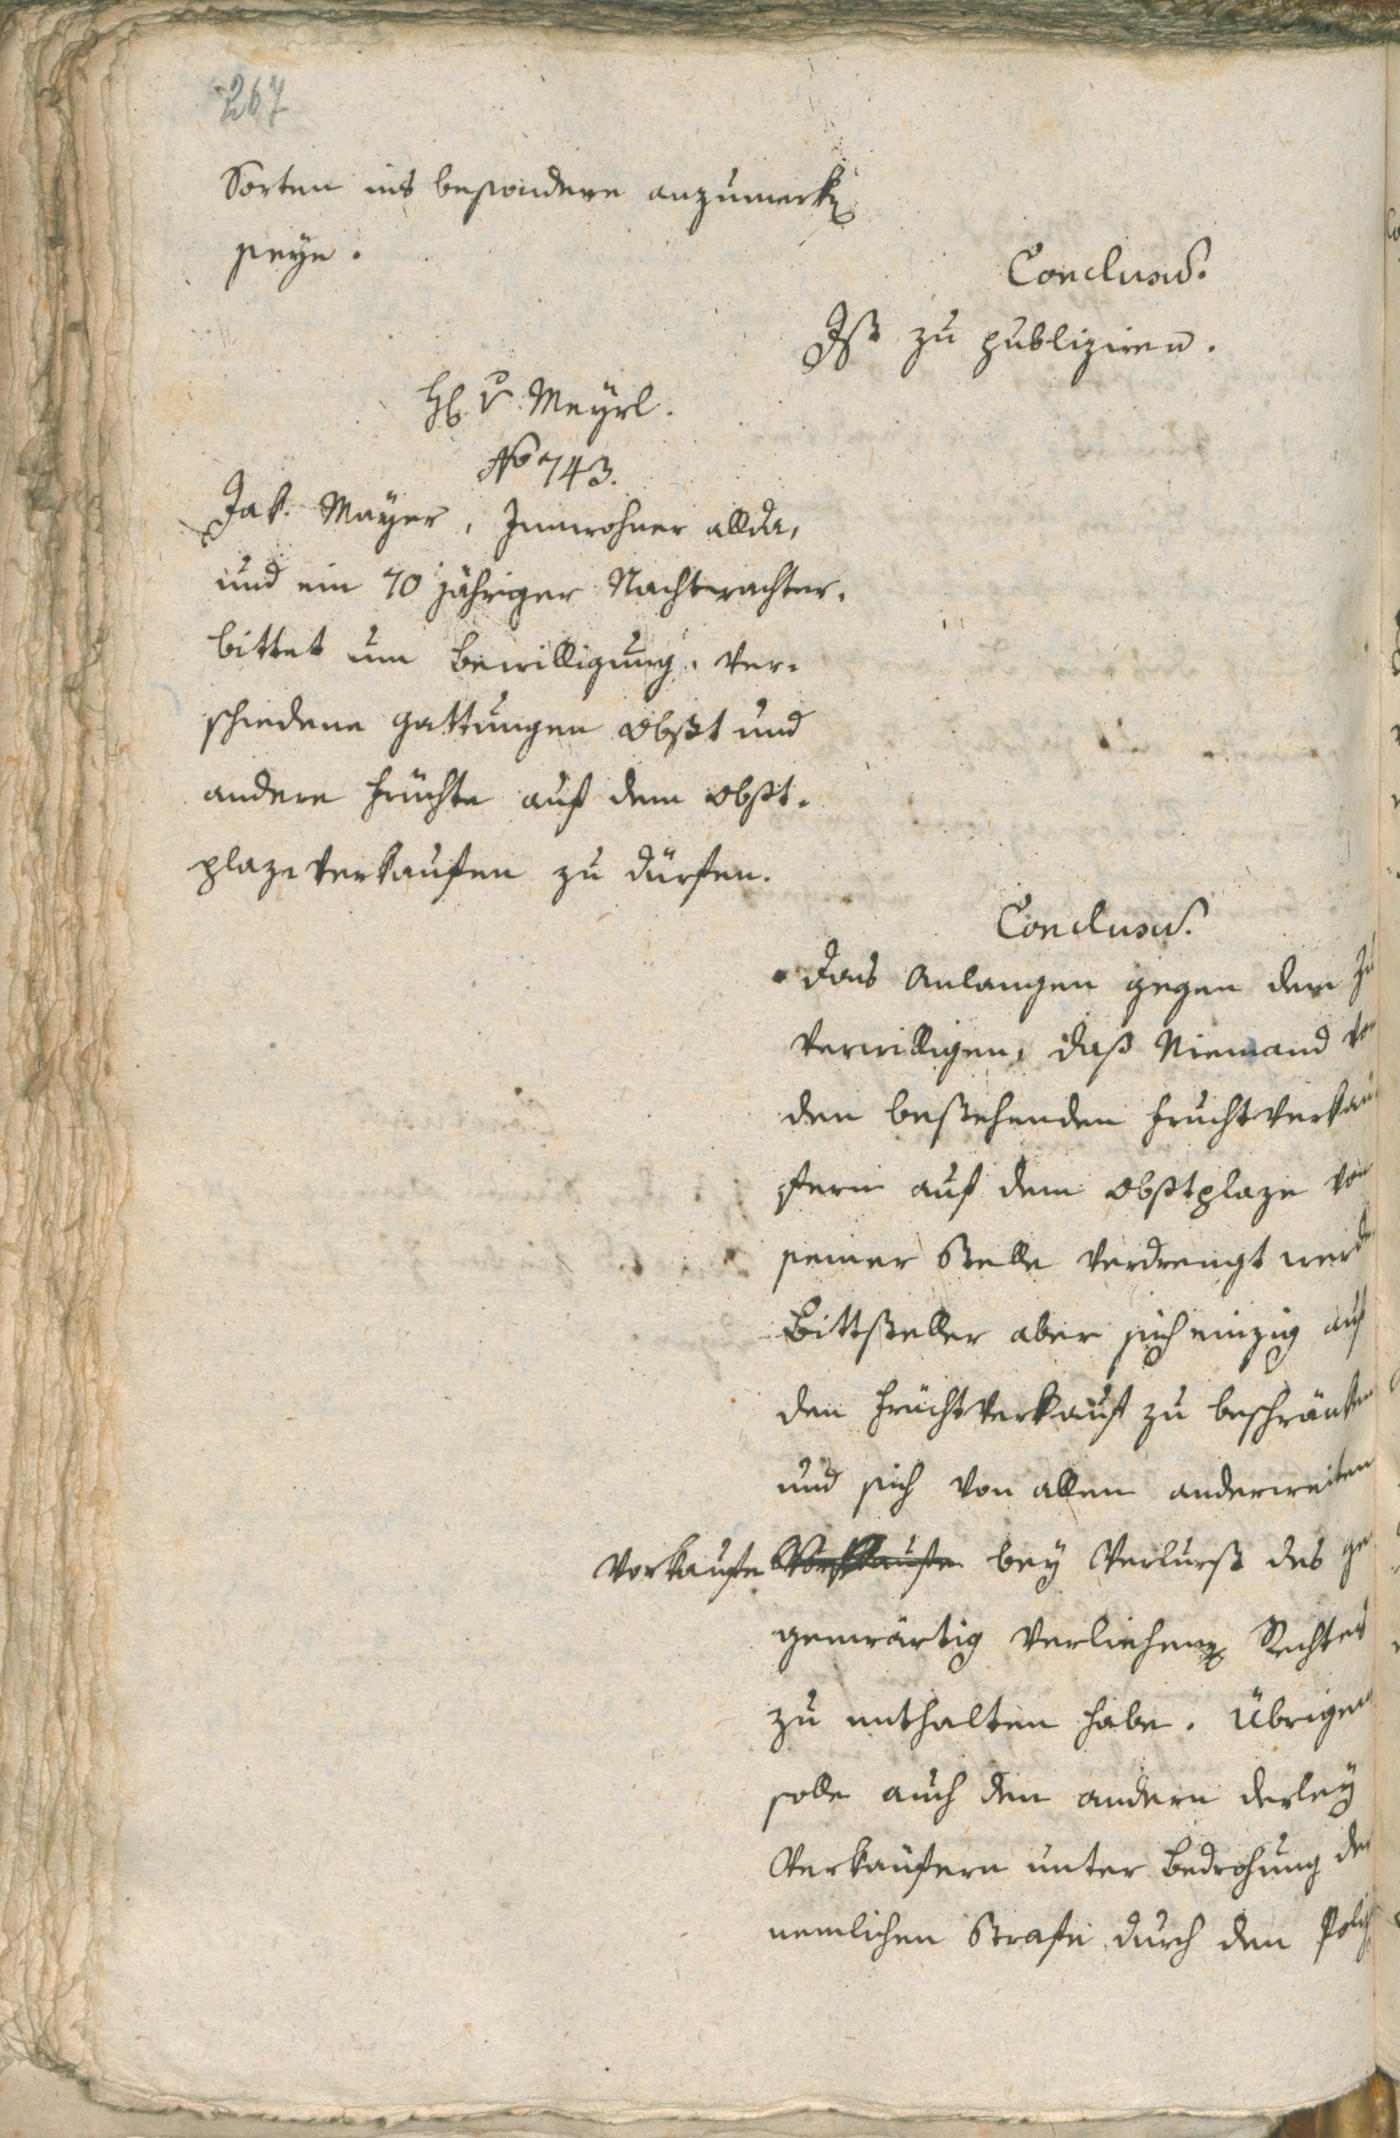 267
Sorten ins besondere anzumerkẽ
seye.
Conclusũ.
Ist zu publiziren.
H. v. Meyrl.
No 743.
Jak. Mayer, Innwohner allda,
und ein 70 jähriger Nachtwachter,
bittet um Bewilligung, ver-
schiedene Gattungen Obst und
andere Früchte auf dem Obst-
plaze verkaufen zu dürfen.
Conclusũ.
Das Anlangen gegen dem zu
verwilligen, daß Niemand von
den bestehenden Fruchtverkäu-
fern auf dem Obstplaze von
seiner Stelle verdrengt werde
Bittsteller aber sich einzig auf
den Früchtverkauf zu beschränken
und sich von allem anderweiten
Vorkaufe bey Verlurst des ge-
genwärtig verliehenẽ Rechtes
zu enthalten habe. Übrigens
solle auch den andern derley
Verkäufern unter Bedrohung der
nemlichen Strafe durch den